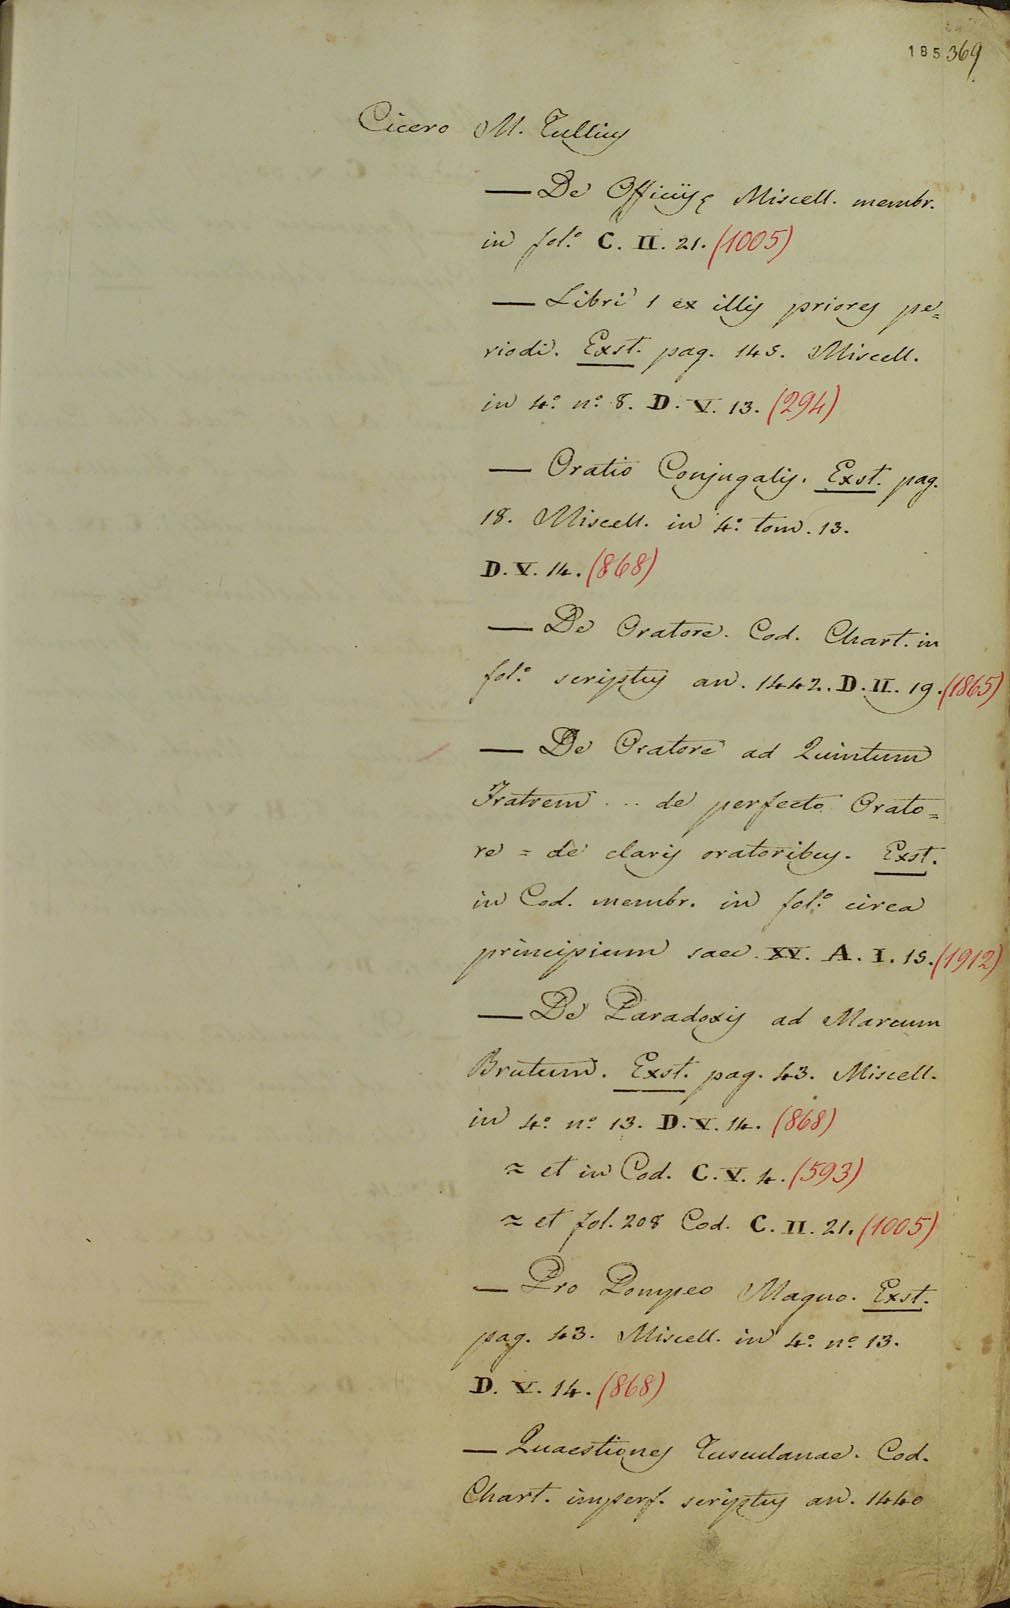 185 369
Cicero M. Tullius
— De Officijs Miscell. membr.
in fol.º C. II. 21. (1005)
— Libri 1 ex illis priores pe=
riodi. Exst. pag. 145. Miscell.
in 4.º n.º 8. D. V. 13. (294)
— Oratio Conjugalis. Exst. pag.
18. Miscell. in 4.º tom. 13.
D. V. 14. (868)
— De Oratore. Cod. Chart. in
fol.º scriptus an. 1442. D. II. 19. (1865)
— De Oratore ad Quintum
Fratrem ... de perfecto Orato=
re = de claris oratoribus. Exst.
in Cod. membr. in fol.º circa
principium saec. XV. A. I. 15. (1912)
— De Paradoxis ad Marcum
Brutum. Exst. pag. 43. Miscell.
in 4.º n.º 13. D. V. 14. (868)
≈ et in Cod. C. V. 4. (593)
≈ et fol. 208 Cod. C. II. 21. (1005)
— Pro Pompeo Magno. Exst.
pag. 43. Miscell. in 4.º n.º 13.
D. V. 14. (868)
— Quaestiones Tusculanae. Cod.
Chart. imperf. scriptus an. 1440